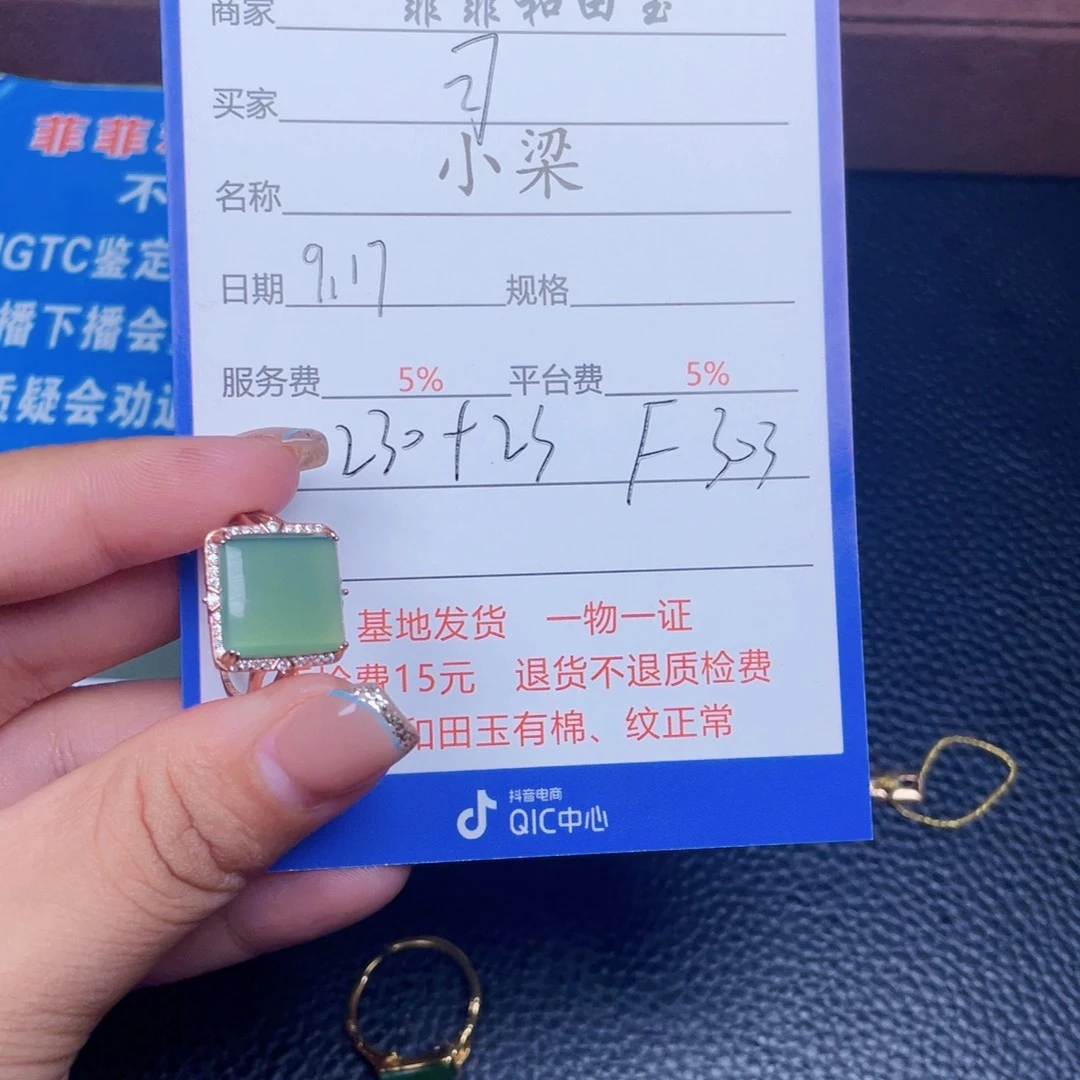 商家 菲菲和田玉
买家
名称 小梁
日期 9.17 规格
服务费 5% 平台费 5%
230+25 F 303
基地发货 一物一证
检费15元 退货不退质检费
和田玉有棉、纹正常
抖音电商
QIC中心
菲菲
不
NGTC鉴定
播下播会
质疑会劝退